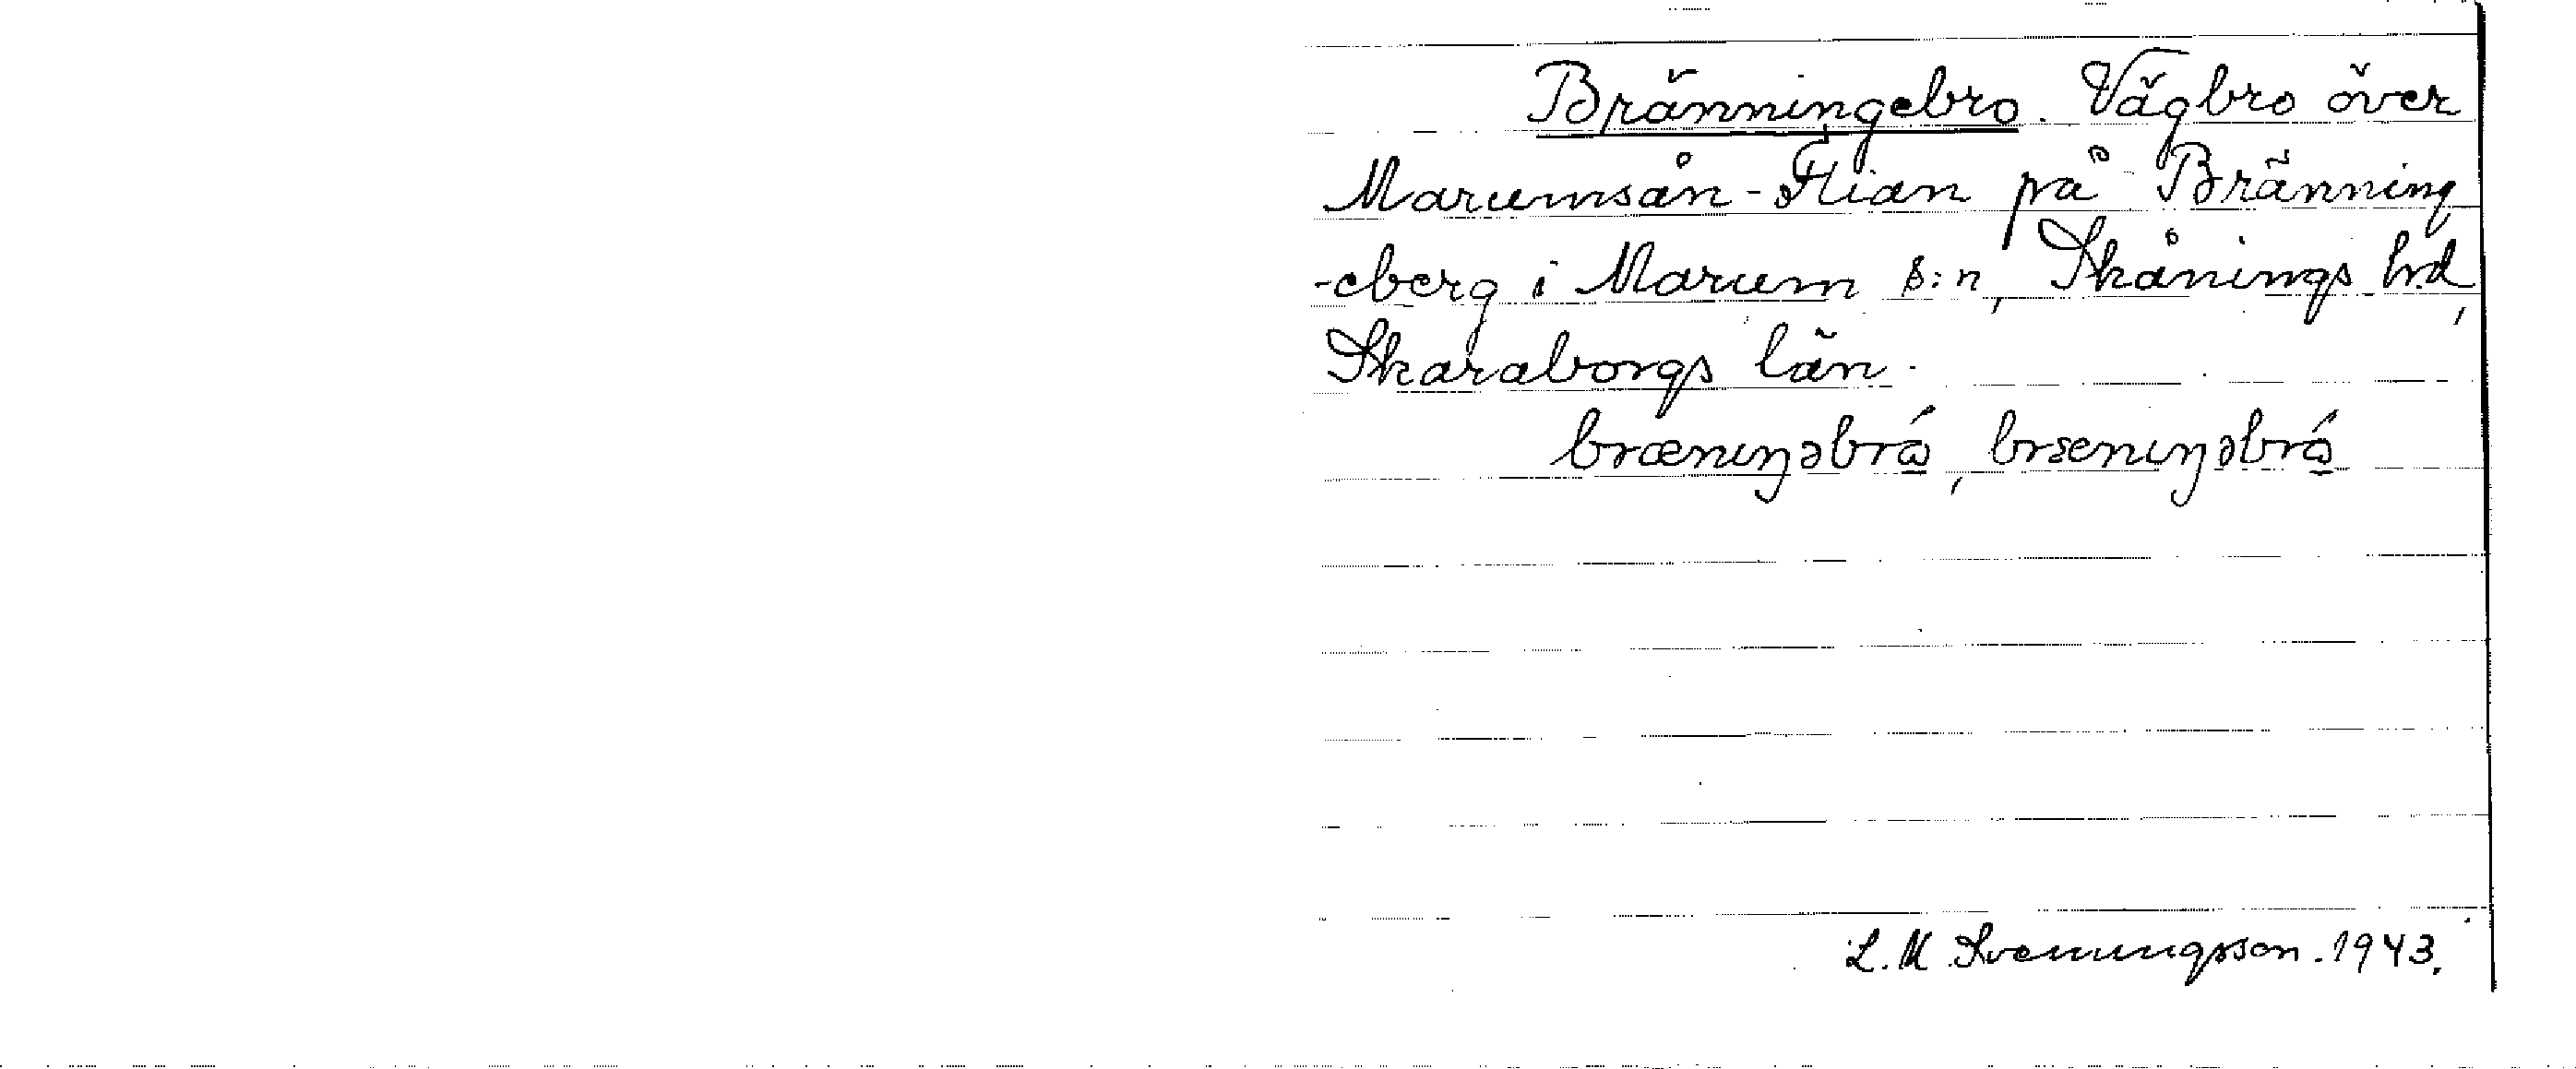 Bränningebro. Vägbro över
Marumsån-Flian på Bränning
-eberg i Marum s:n, Skånings hd,
Skaraborgs län.
brænıŋəbrɷ́, brænıŋəbrɷ́
L. M. Svenungsson. 1943.